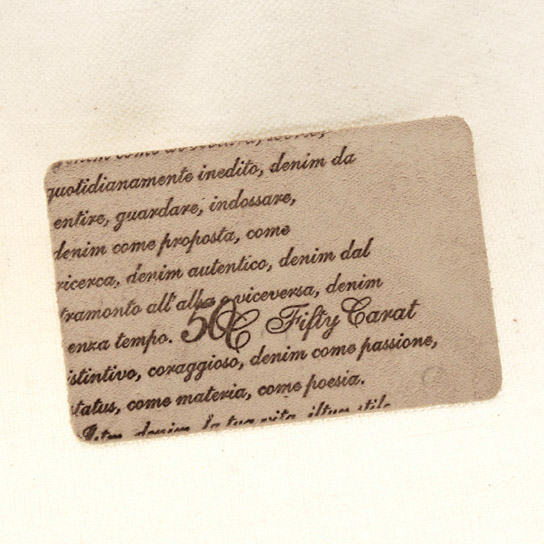 quotidianamente inedito, denim da
entire, guardare, indossare,
denim come proposta, come
ricerca, denim autentico, denim dal
tramonto all'alba e viceversa, denim
enza tempo. 50C Fifty Carat
istintivo, coraggioso, denim come passione,
tatus, come materia, come poesia.
denim, la tua vita, il tuo stile